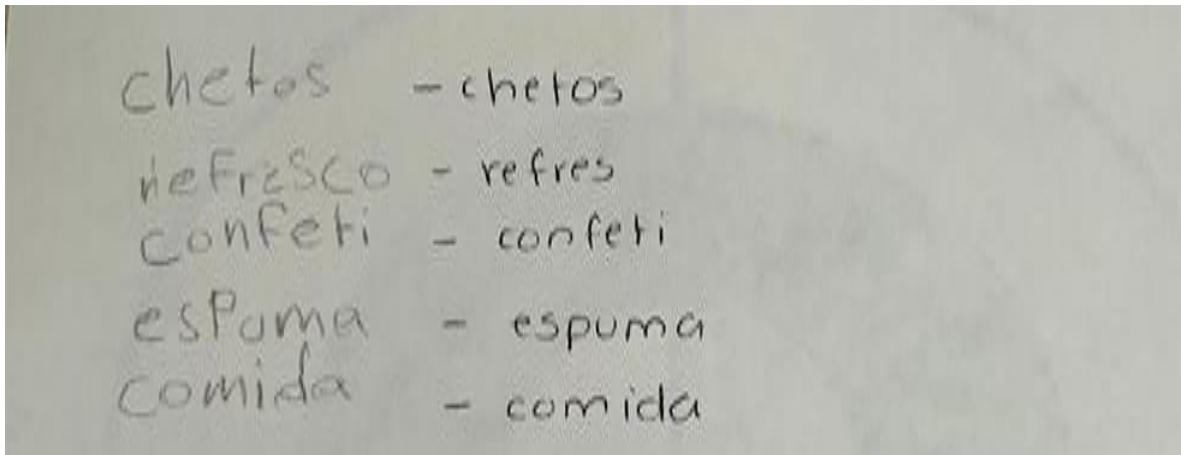 chetos - chetos
refresco - refres
confeti - confeti
espuma - espuma
comida - comida